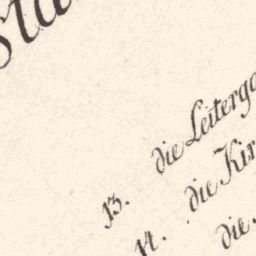 13. die Leiterga
14. die Kir
die